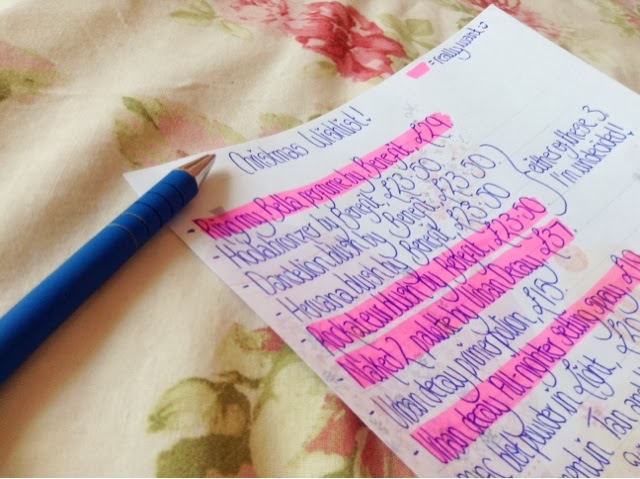 = really want
Christmas Wishlist!
- Ring my Bella perfume by Benefit. £29
- Hoola bronzer by Benefit. £23.50
- Dandelion blush by Benefit. £23.50
- Hervana blush by Benefit. £23.50
either of these 3
I'm undecided!
- Rockateur blush by Benefit. £23.50
- Naked 2 palette by Urban Decay. £37
- Urban decay primer potion. £16
- Urban decay All nighter setting spray.
powder in light. £
in Tan